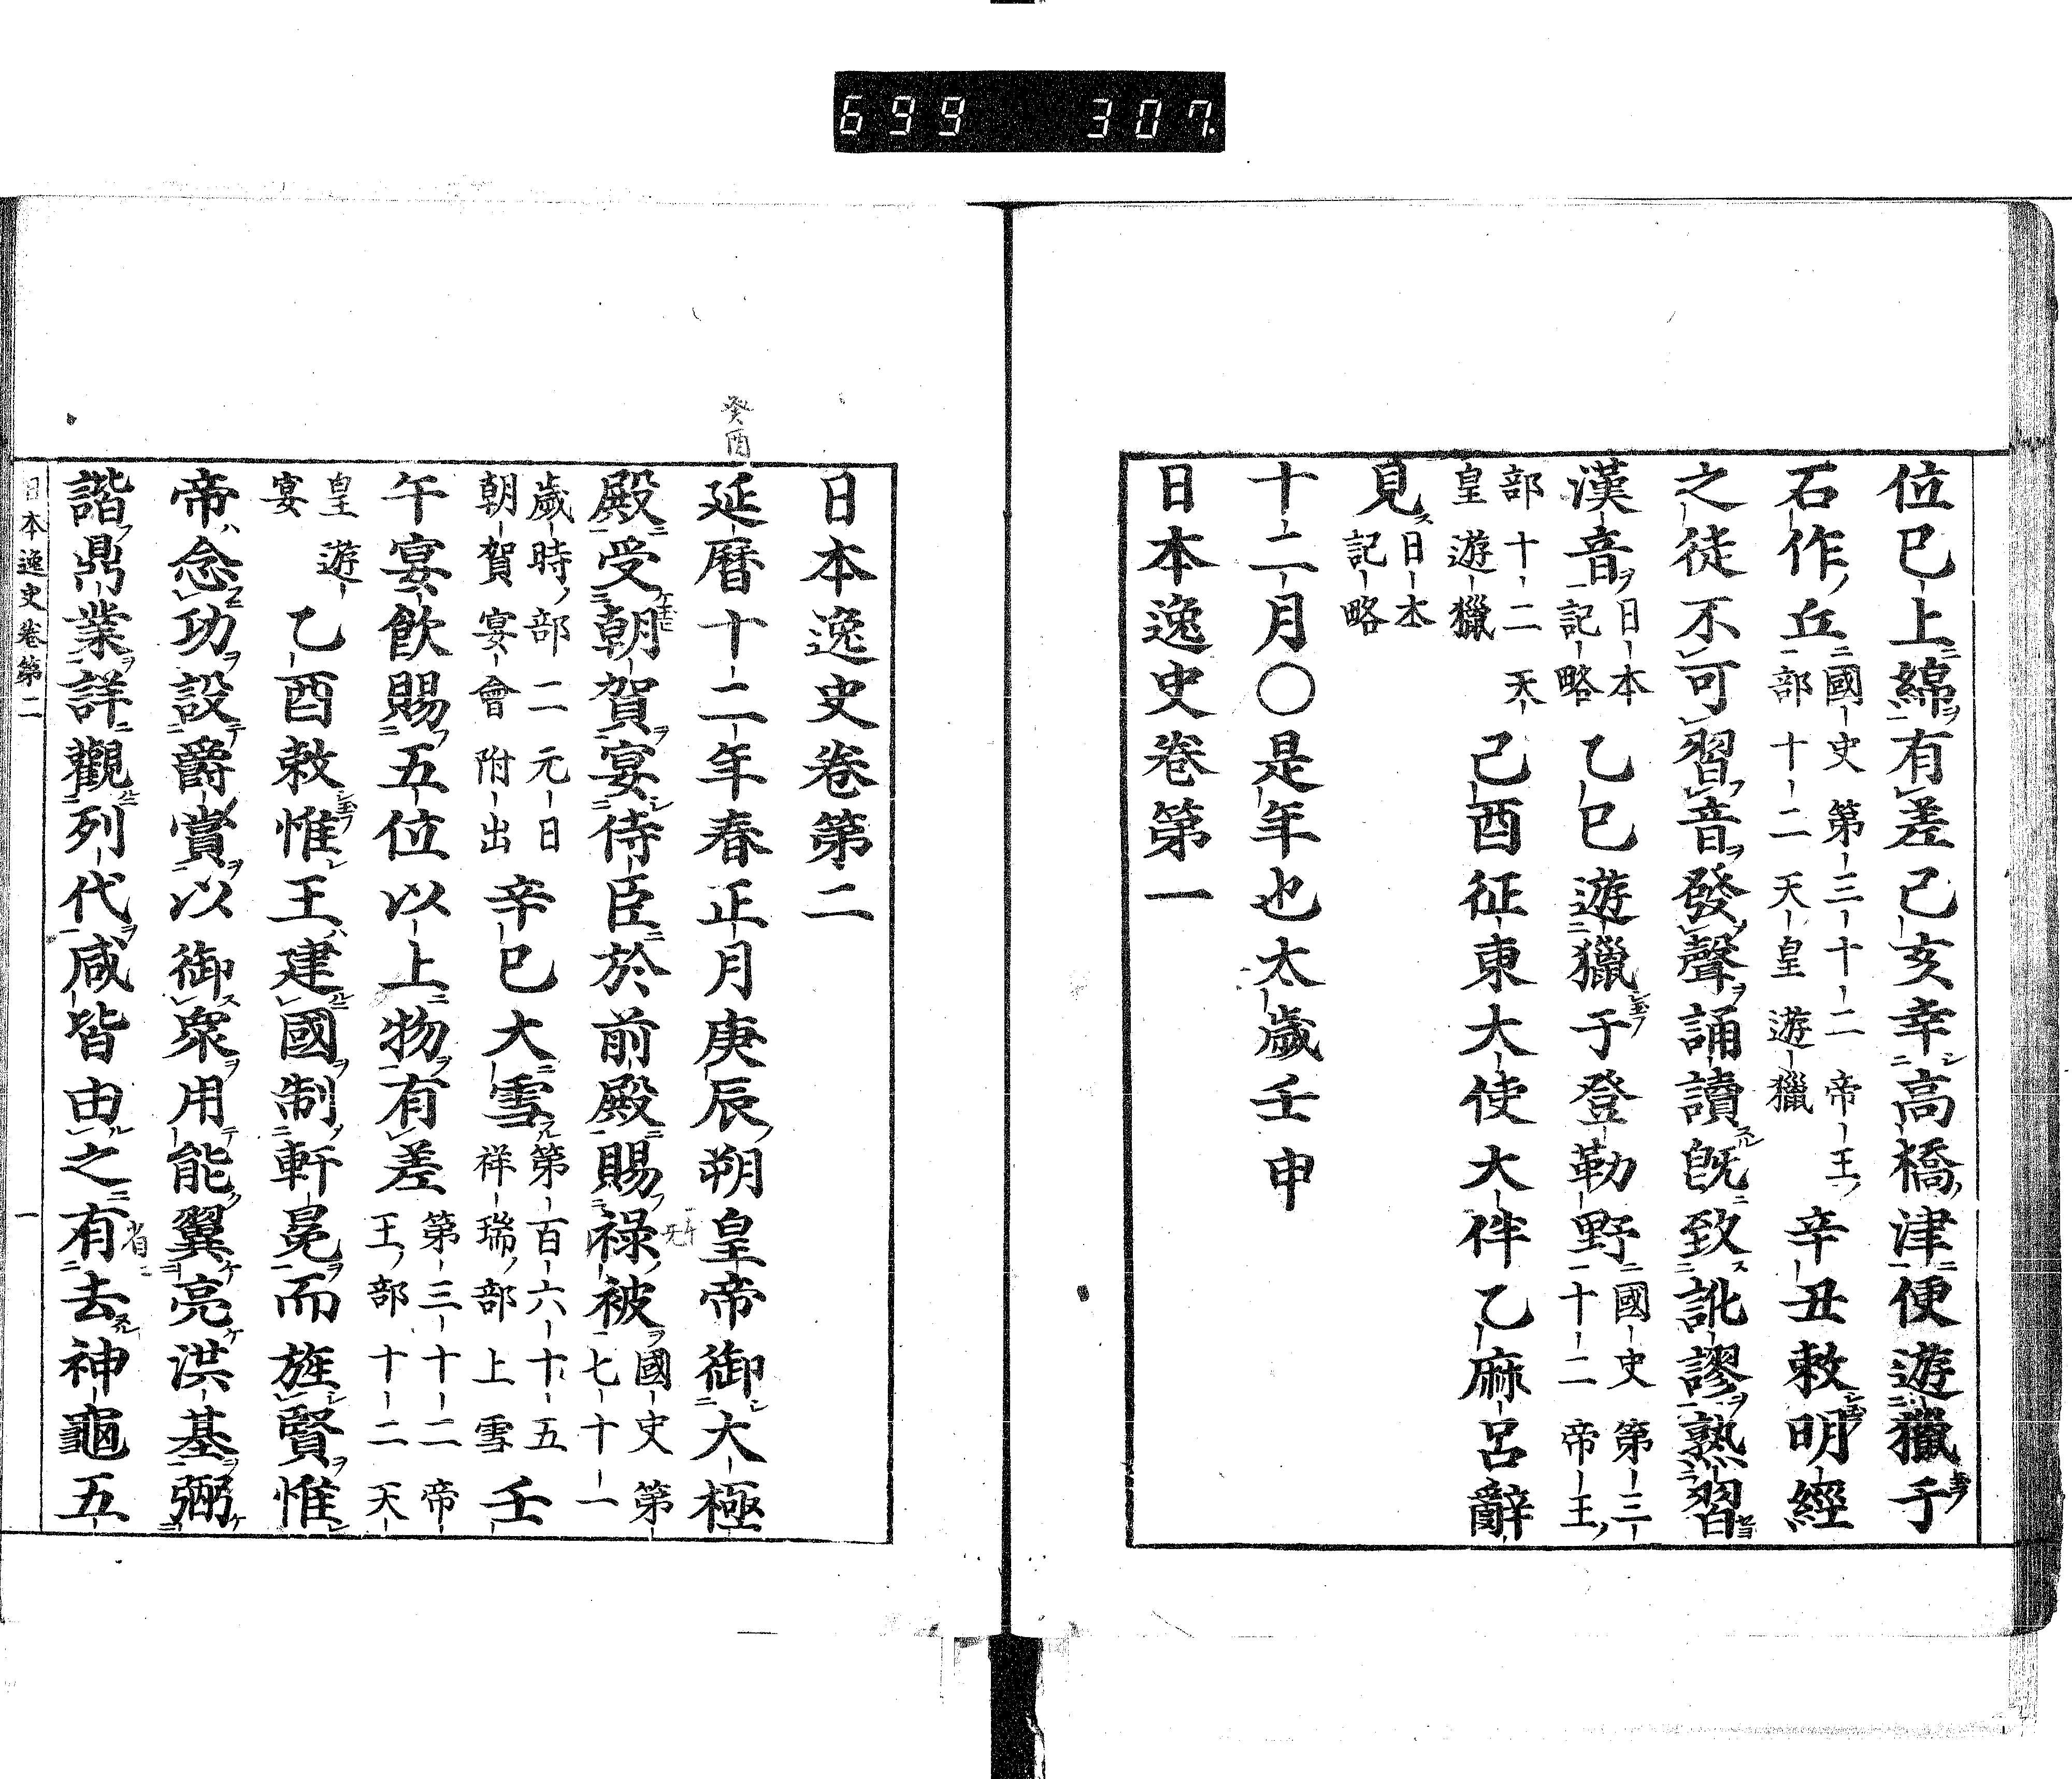 699 307
位已上綿有差己亥幸高橋津便遊獵于
石作丘國史第三十二帝王部十二天皇遊獵辛丑敕明經
之徒不可習音發聲誦讀既致訛謬熟習
漢音日本記略乙巳遊獵于登勒野國史第三十二帝王
部十二天皇遊獵己酉征東大使大伴乙麻呂辭
見日本記略
十二月○是年也太歲壬申
日本逸史卷第一
日本逸史卷第二
癸酉
延曆十二年春正月庚辰朔皇帝御大極
殿受朝賀宴侍臣於前殿賜祿被國史第七十一
歲時部二元日朝賀宴會附出辛巳大雪第百六十五祥瑞部上雪壬
午宴飲賜五位以上物有差第三十二帝王部十二天
皇遊宴乙酉敕惟王建國制軒冕而旌賢惟
帝念功設爵賞以御衆用能翼亮洪基弼
諧鼎業詳觀列代咸皆由之有去神龜五
省
日本逸史卷第二 一